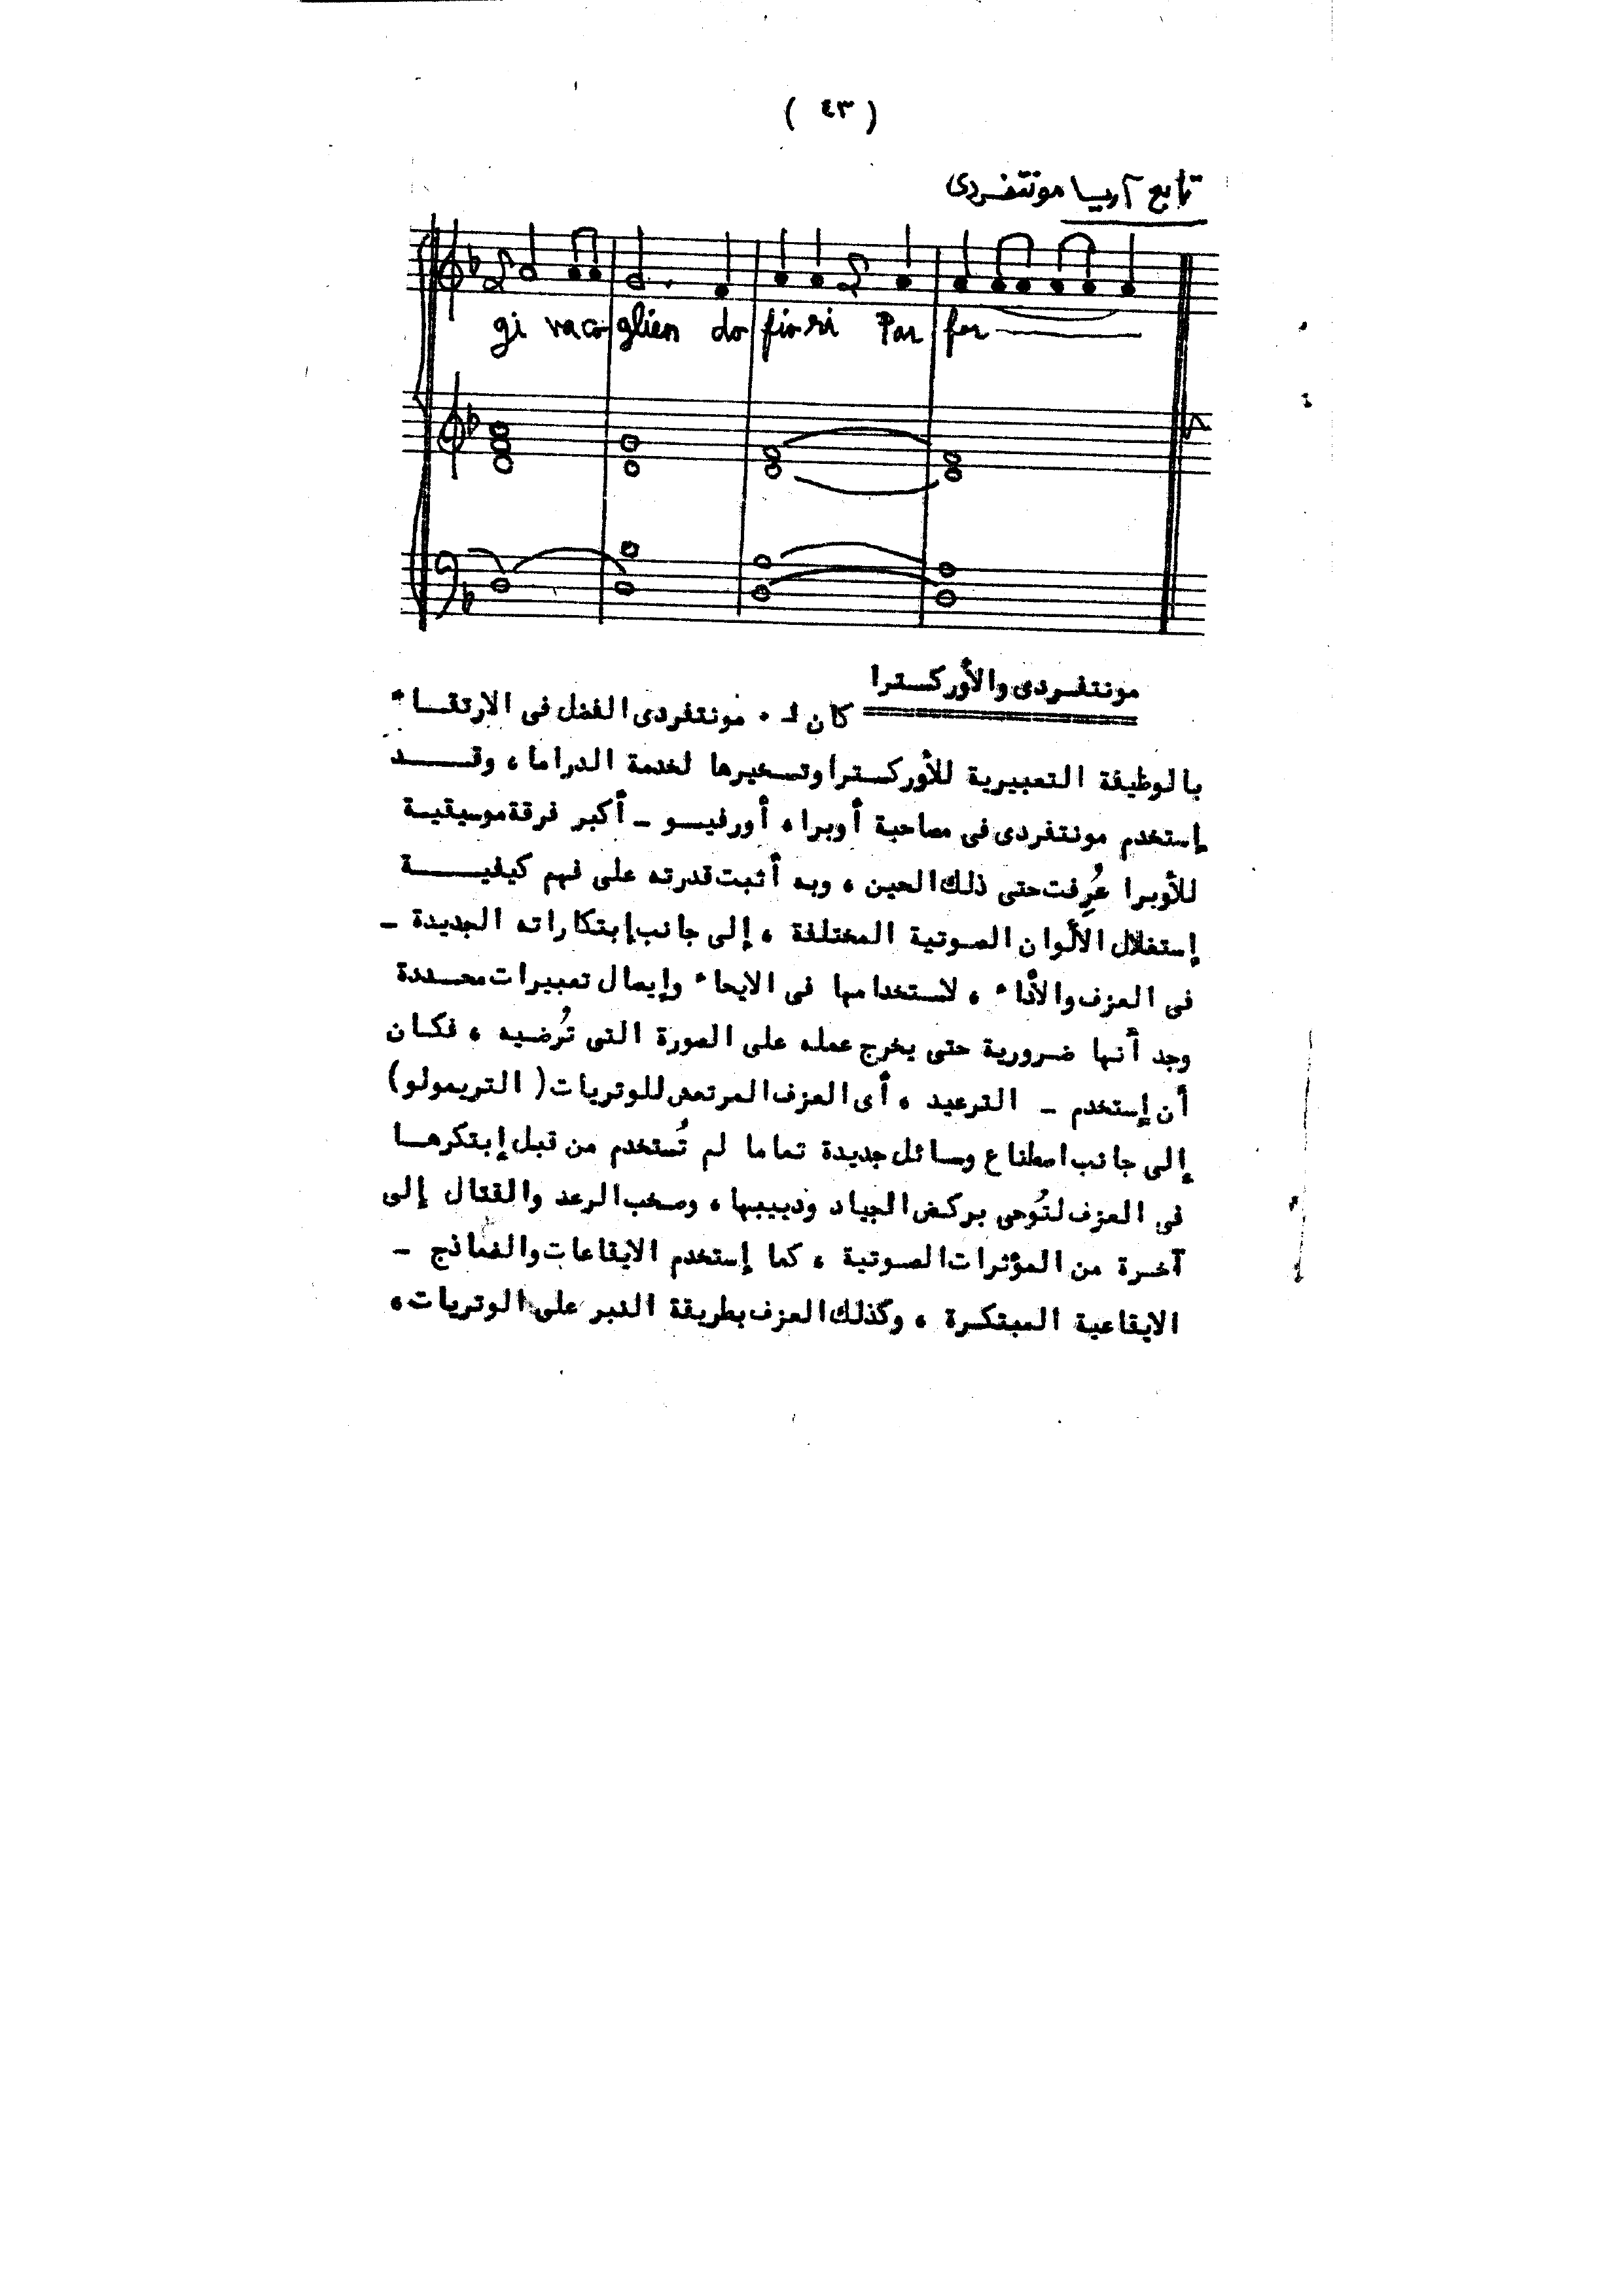 ( ٤٣ )
تابع آريا مونتفردى
gi va co glien do fio ri Par far
مونتفردى والأوركسترا
كان لـ ٠ مونتفردى الفضل فى الارتقاء
بالوظيفة التعبيرية للأوركسترا وتسخيرها لخدمة الدراما ، وقد
إستخدم مونتفردى فى مصاحبة أوبرا ، أورفيو ـ أكبر فرقة موسيقية
للأوبرا عُرِفت حتى ذلك الحين ، وبه أثبت قدرته على فهم كيفية
إستغلال الألوان الصوتية المختلفة ، إلى جانب إبتكاراته الجديدة ـ
فى العزف والأداء ، لاستخدامها فى الايحاء وإيصال تعبيرات محددة
وجد أنها ضرورية حتى يخرج عمله على الصورة التى تُرضيه ، فكان
أن إستخدم ـ الترعيد ، أى العزف المرتعش للوتريات ( التريمولو )
إلى جانب اصطناع وسائل جديدة تماما لم تُستخدم من قبل إبتكرها
فى العزف لتُوحى بركض الجياد ودبيبها ، وصخب الرعد والقتال إلى
آخرة من المؤثرات الصوتية ، كما إستخدم الايقاعات والنماذج ـ
الايقاعية المبتكرة ، وكذلك العزف بطريقة النبر على الوتريات ،